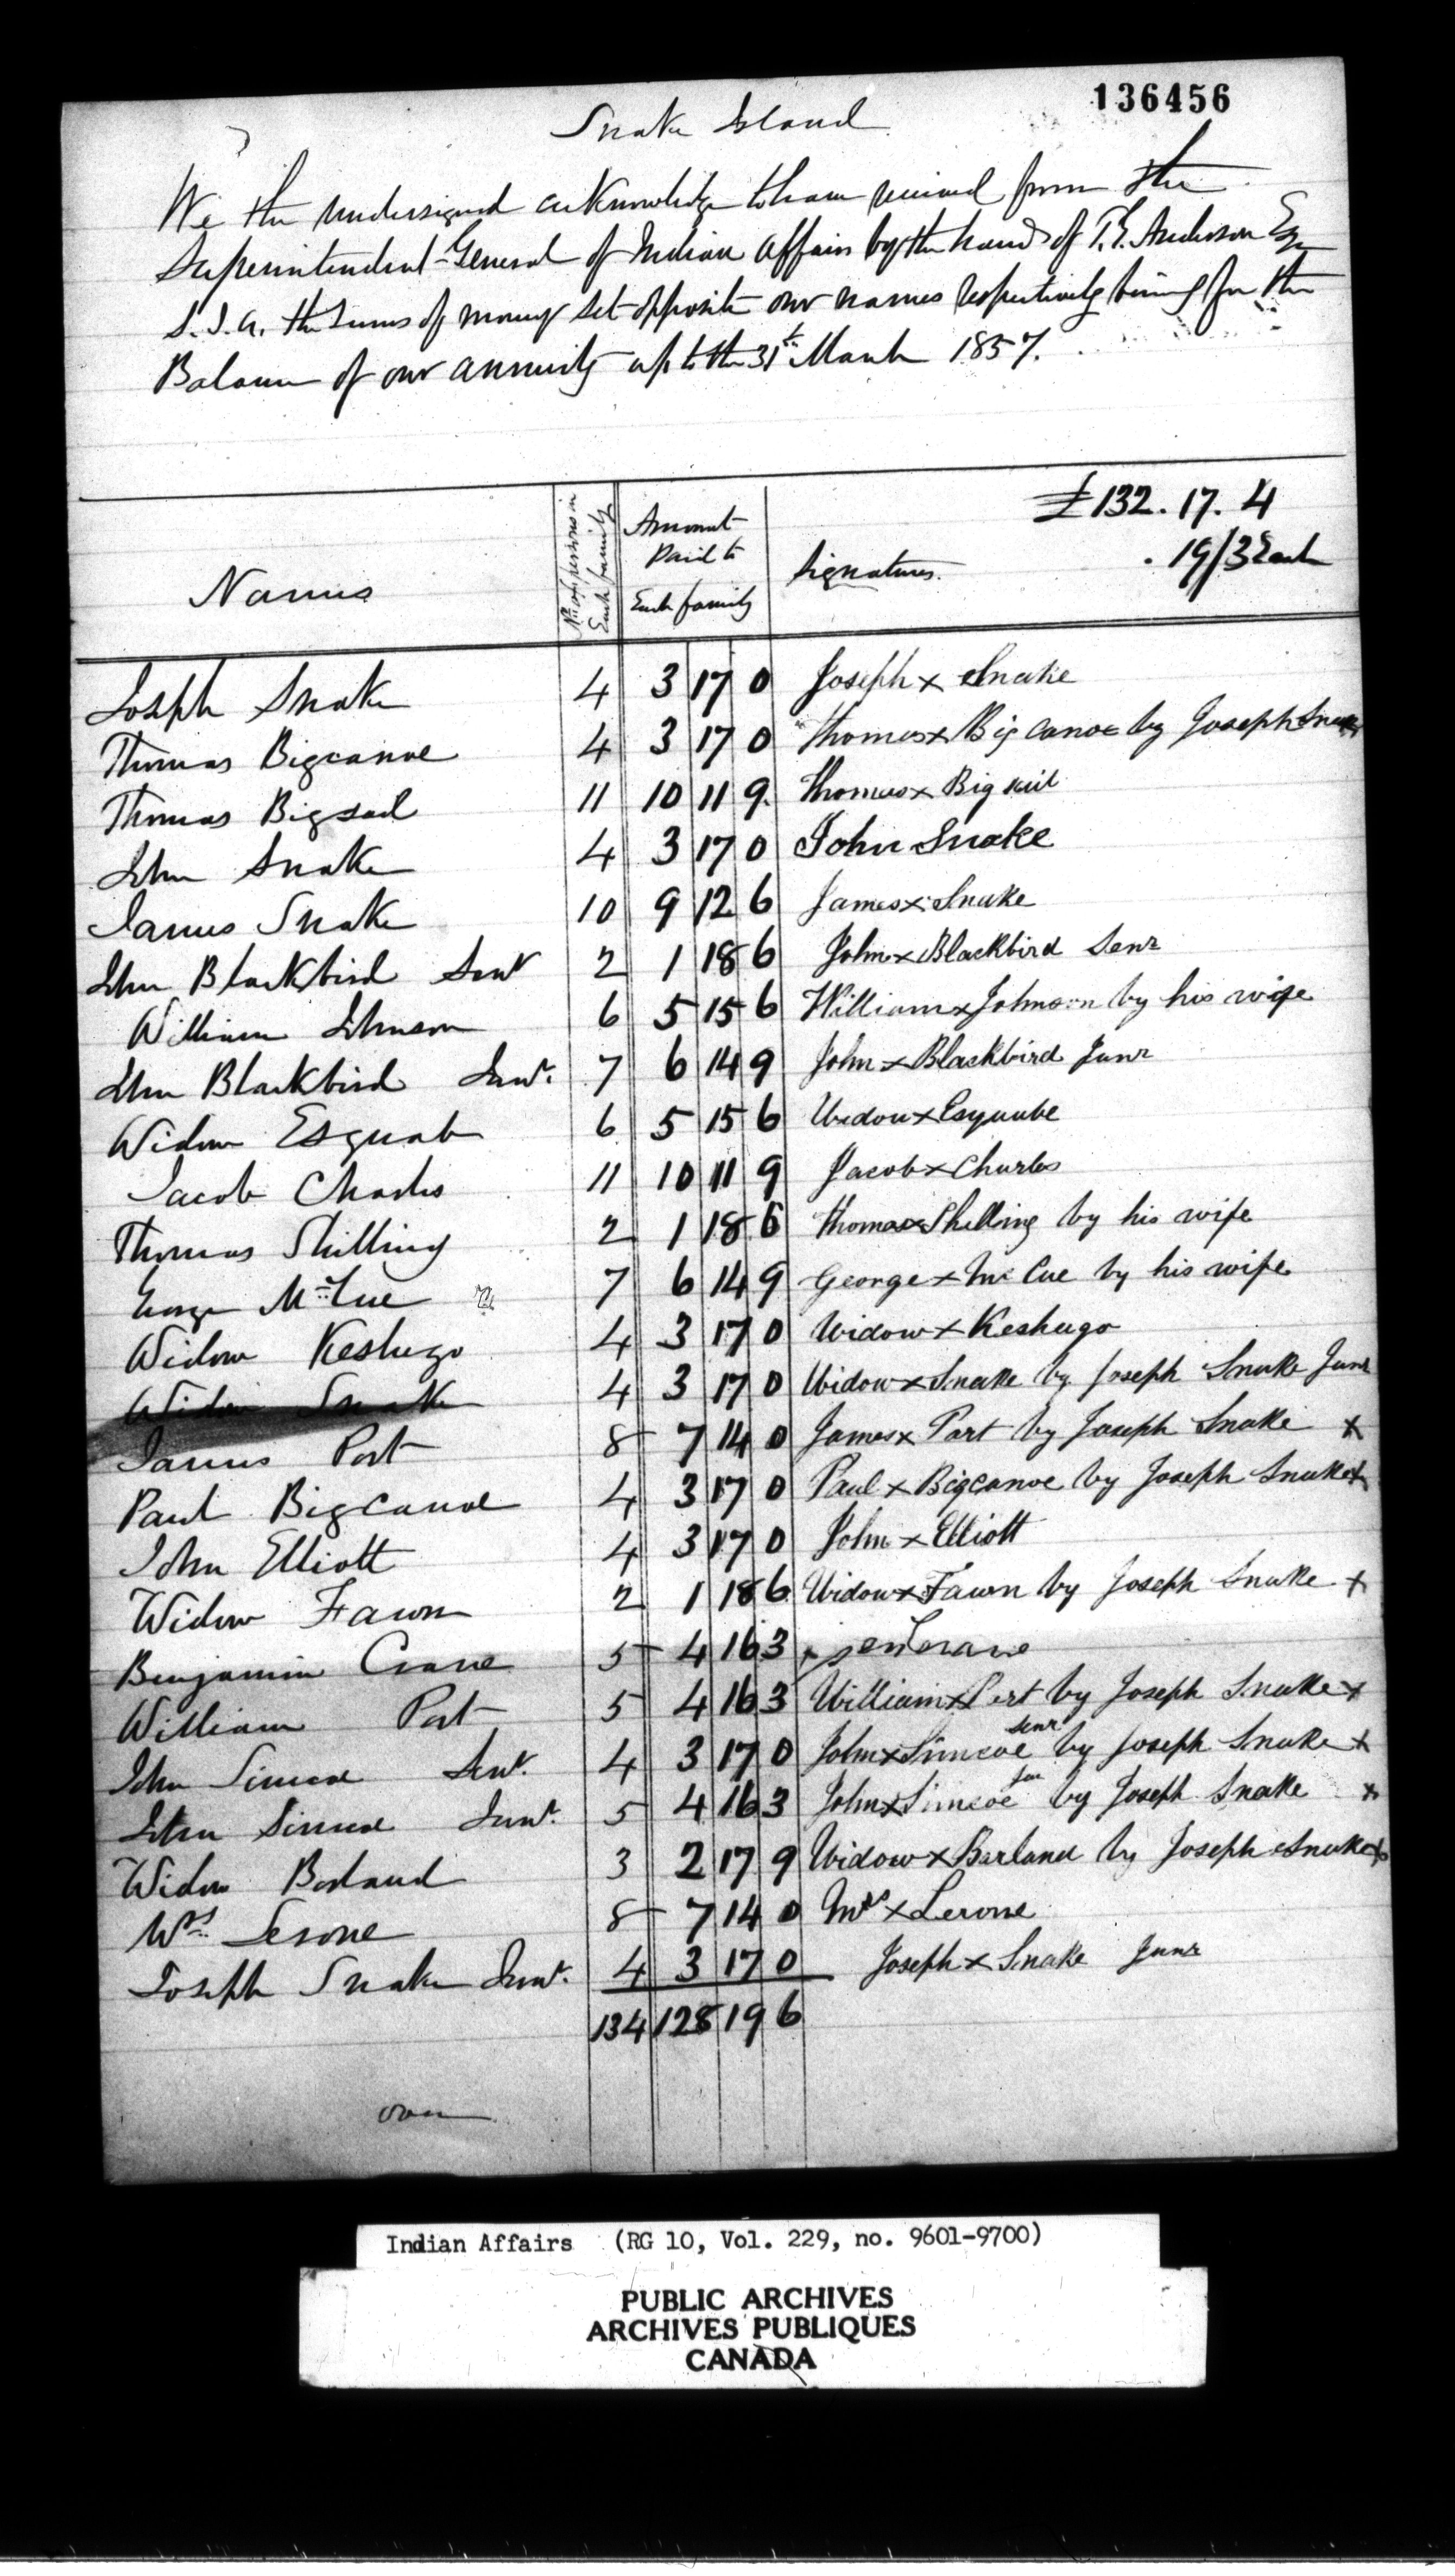 136456
Snake Island
We the undersigned acknowledge to have received from the
Superintendent-General of Indian Affairs by the hands of T.G. Anderson Esqr
S.I.A. the sums of money set opposite our names respectively being for the
Balance of our annuity up to the 31st March 1857.
£132.17.4
19/3 Each
Names
No. of persons in Each family
Amount Paid to Each family
Signatures.
Joseph Snake 4 3 17 0 Joseph x Snake
Thomas Bigcanoe 4 3 17 0 Thomas x Big canoe by Joseph Snake x
Thomas Bigsail 11 10 11 9 Thomas x Big sail
John Snake 4 3 17 0 John Snake
James Snake 10 9 12 6 James x Snake
John Blackbird Senr 2 1 18 6 John x Blackbird Senr
William Johnson 6 5 15 6 William x Johnson by his wife
John Blackbird Junr. 7 6 14 9 John x Blackbird Junr
Widow Esquab 6 5 15 6 Widow x Esquabe
Jacob Charles 11 10 11 9 Jacob x Charles
Thomas Shilling 2 1 18 6 Thomas x Shilling by his wife
George McCue 7 6 14 9 George x Mc Cue by his wife
Widow Keshego 4 3 17 0 Widow x Keshugo
Widow Snake 4 3 17 0 Widow x Snake by Joseph Snake Junr
James Port 8 7 14 0 James x Port by Joseph Snake x
Paul Bigcanoe 4 3 17 0 Paul x Bigcanoe by Joseph Snake x
John Elliott 4 3 17 0 John x Elliott
Widow Fawn 2 1 18 6 Widow x Fawn by Joseph Snake x
Benjamin Crane 5 4 16 3 x Ben Crane
William Port 5 4 16 3 William x Port by Joseph Snake x
John Simcoe Senr. 4 3 17 0 John x Simcoe senr by Joseph Snake x
John Simcoe Junr. 5 4 16 3 John x Simcoe Jun by Joseph Snake x
Widow Borland 3 2 17 9 Widow x Borland by Joseph Snake x
Mrs. Lerone 8 7 14 0 Mrs x Lerone
Joseph Snake Junr. 4 3 17 0 Joseph x Snake Junr
134 128 19 6
over
Indian Affairs (RG 10, Vol. 229, no. 9601-9700)
PUBLIC ARCHIVES
ARCHIVES PUBLIQUES
CANADA